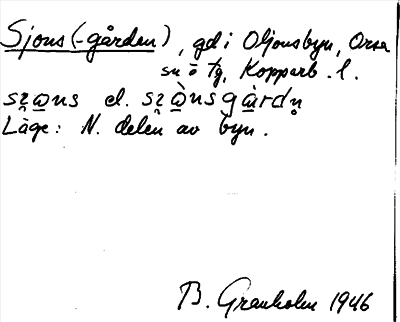 Sjons (-gården), gd i Oljonsbyn, Orsa
sn o tg, Kopparb. l.
el.
Läge: N. delen av byn.
B. Granholm 1946